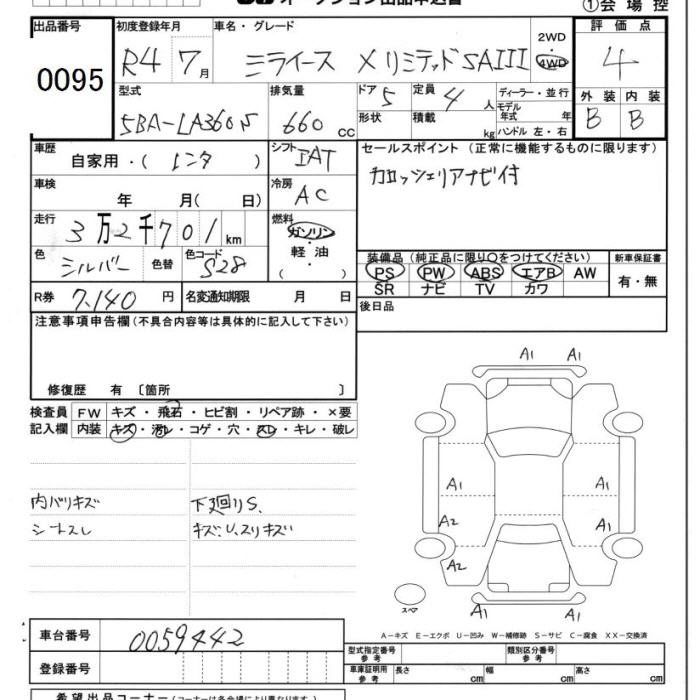 オークション出品申込書
①会場控
出品番号 初度登録年月 車名・グレード 2WD 評価点
0095 R4 7月 ミライース X リミテッド SAIII ・ 4WD 4
型式 排気量 ドア 定員 ディーラー・並行 外装 内装
5BA-LA360S 660 CC 5 4 人 モデル年式 年 B B
形状 積載 kg ハンドル 左・右
車歴 シフト セールスポイント (正常に機能するものに限ります)
自家用・( レンタ ) IAT カロッシェリアナビ付
車検 冷房
年 月( 日) AC
走行 燃料
3万2千701km ガソリン
色 色替 色コード 軽油
シルバー S28 ( )
装備品 (純正品に限り〇をつけてください) 新車保証書
PS PW ABS エアB AW 有・無
SR ナビ TV カワ
R券 7,140 円 名変通知期限 月 日 後日品
注意事項申告欄 (不具合内容等は具体的に記入して下さい)
修復歴 有 〔箇所 〕
検査員 FW キズ・飛石・ヒビ割・リペア跡・×要
記入欄 内装 キズ・汚レ・コゲ・穴・スレ・キレ・破レ
A1 A1
A1 A1
A2
A2
A1 A1
内バリキズ 下廻りS、
シートスレ キズ、U、スリキズ
スペア
A-キズ E-エクボ U-凹み W-補修跡 S-サビ C-腐食 XX-交換済
車台番号 0059442
登録番号
型式指定番号 参考 類別区分番号 参考
車庫証明用 参考 長さ cm 幅 cm 高さ cm
希望出品コーナー (コーナーは各会場により異なります)